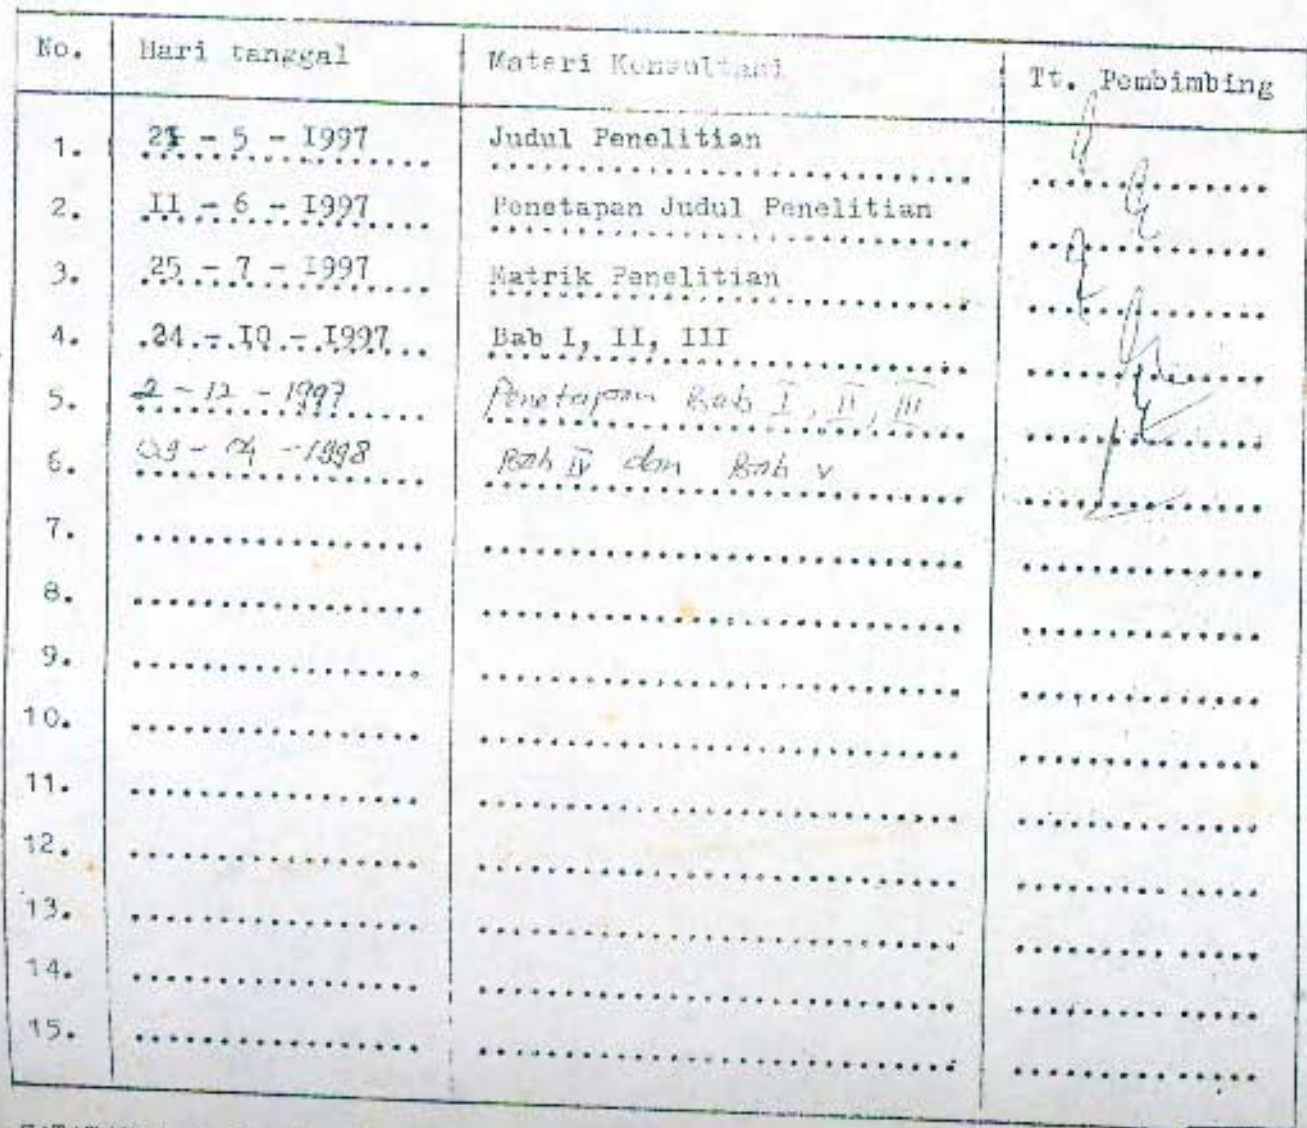 No. Hari tanggal Materi Konsultasi Tt. Pembimbing
1. - 5 - I997 Judul Penelitian
2. II - 6 - I997 Penetapan Judul Penelitian
3. 25 - 7 - I997 Matrik Penelitian
4. 24 - IO - I997 Bab I, II, III
5. 2 - 12 - 1997 Penetapan Bab I, II, III
6. 09 - 04 - 1998 Bab IV dan Bab V
7.
8.
9.
10.
11.
12.
13.
14.
15.